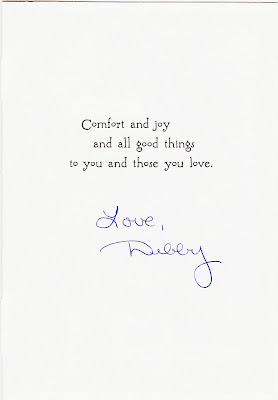 Comfort and joy
and all good things
to you and those you love.
Love,
Debby